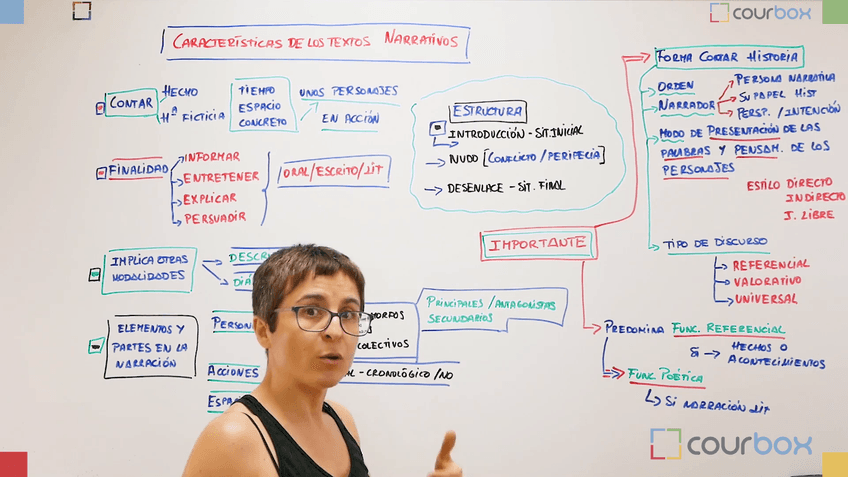 courbox
CARACTERÍSTICAS DE LOS TEXTOS NARRATIVOS
CONTAR
HECHO
Hª FICTICIA
TIEMPO
ESPACIO
CONCRETO
UNOS PERSONAJES
EN ACCIÓN
FINALIDAD
INFORMAR
ENTRETENER
EXPLICAR
PERSUADIR
ORAL/ESCRITO/LIT
ESTRUCTURA
INTRODUCCIÓN - SIT. INICIAL
NUDO [CONFLICTO/PERIPECIA]
DESENLACE - SIT. FINAL
IMPLICA OTRAS
MODALIDADES
DESCR
DIÁ
ELEMENTOS Y
PARTES EN LA
NARRACIÓN
PERSON
MORFOS
COLECTIVOS
PRINCIPALES/ANTAGONISTAS
SECUNDARIOS
ACCIONES
AL - CRONOLÓGICO/NO
ESPA
IMPORTANTE
FORMA CONTAR HISTORIA
ORDEN
NARRADOR
PERSONA NARRATIVA
SU PAPEL HIST
PERSP. / INTENCIÓN
MODO DE PRESENTACIÓN DE LAS
PALABRAS Y PENSAM. DE LOS
PERSONAJES
ESTILO DIRECTO
INDIRECTO
I. LIBRE
TIPO DE DISCURSO
REFERENCIAL
VALORATIVO
UNIVERSAL
PREDOMINA FUNC. REFERENCIAL
HECHOS O
ACONTECIMIENTOS
FUNC. POÉTICA
SI NARRACIÓN LIT
courbox